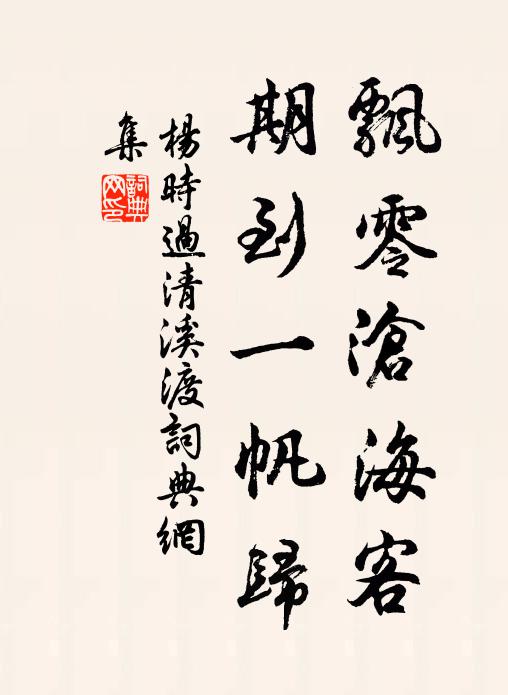 飄零滄海客
期到一帆歸
楊時過清溪渡詞典網
集
詞典
网印